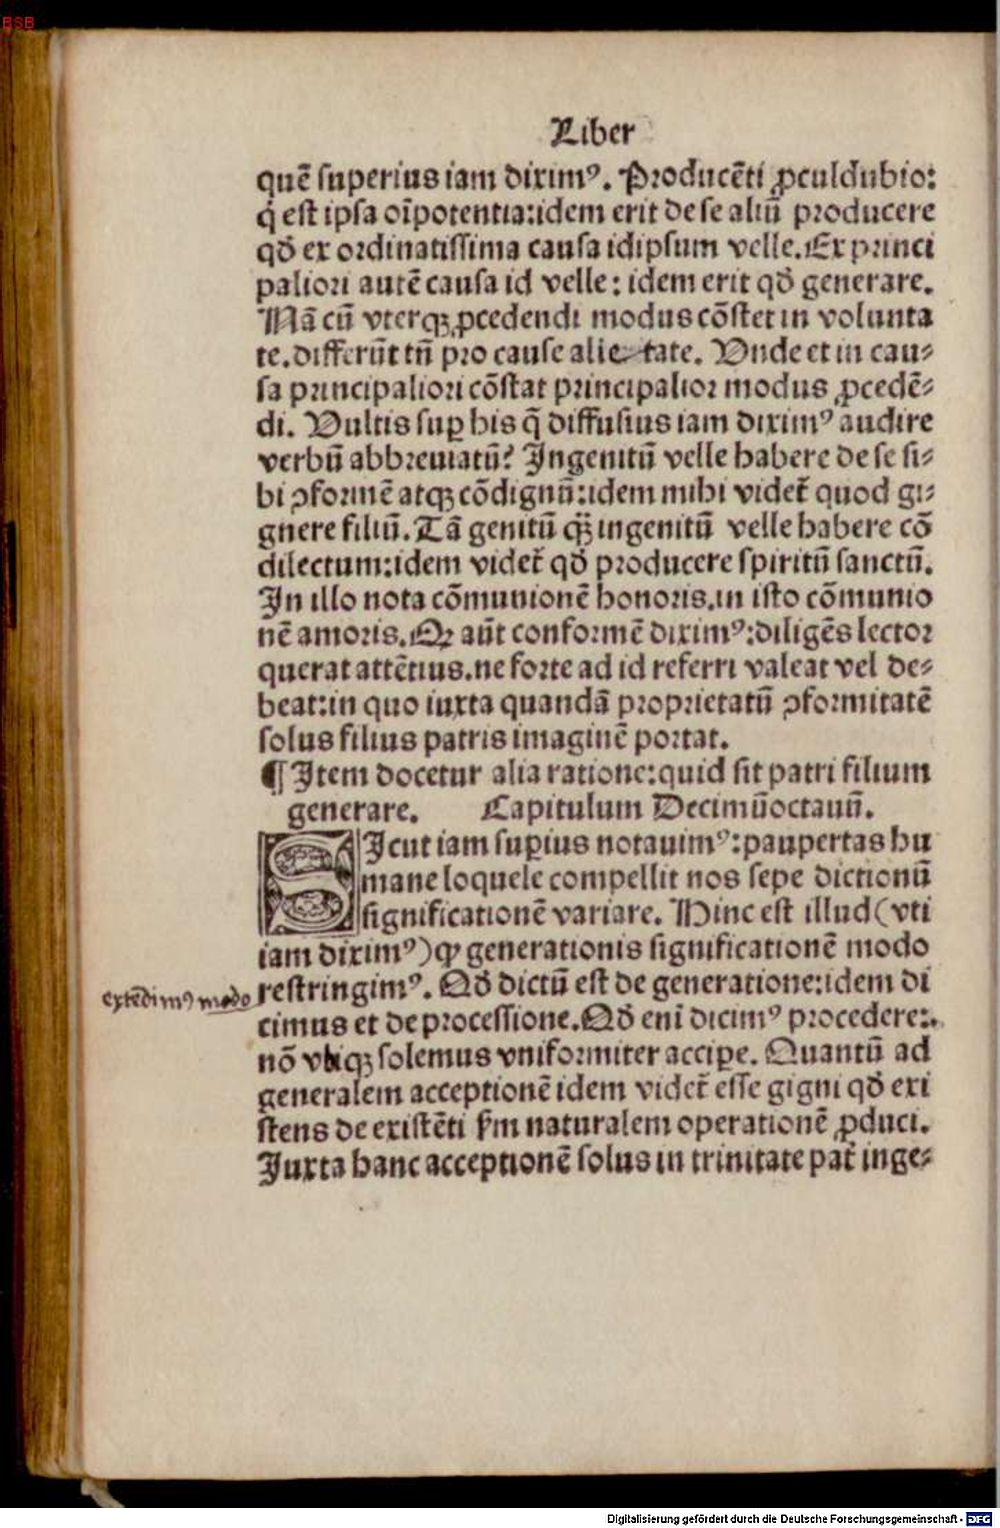 BSB
Liber
quē superius iam dixim⁹. Producēti ꝓculdubio:
q̇ est ipsa oīpotentia:idem erit de se aliū producere
qđ ex ordinatissima causa idipsum velle. Ex princi
paliori autē causa id velle: idem erit qđ generare.
Nā cū vterqꝫ ꝓcedendi modus cōstet in volunta
te. differūt tñ pro cause alietate. Vnde et in cau⸗
sa principaliori cōstat principalior modus ꝓcedē⸗
di. Vultis suꝑ his q̄ diffusius iam dixim⁹ audire
verbū abbreuiatū? Ingenitū velle habere de se si⸗
bi ꝯformē atqꝫ cōdignū:idem mihi videt᷑ quod gi⸗
gnere filiū. Tā genitū q̄ꝫ ingenitū velle habere cō
dilectum:idem videt᷑ qđ producere spiritū sanctū.
In illo nota cōmunionē honoris.in isto cōmunio
nē amoris. Qꝛ aūt conformē dixim⁹:diligēs lector
querat attētius.ne forte ad id referri valeat vel de⸗
beat:in quo iuxta quandā proprietatū ꝯformitatē
solus filius patris imaginē portat.
¶ Item docetur alia ratione:quid sit patri filium
generare. Capitulum Decimūoctauū.
SIcut iam suꝑius notauim⁹:paupertas hu
mane loquele compellit nos sepe dictionū
significationē variare. Hinc est illud (vti
iam dixim⁹) ꝙ generationis significationē modo
extēdim⁹ modo
restringim⁹. Qđ dictū est de generatione:idem di
cimus et de processione. Qđ enī dicim⁹ procedere:.
nō vbiqꝫ solemus vniformiter acciꝑe. Quantū ad
generalem acceptionē idem videt᷑ esse gigni qđ exi
stens de existēti ẜm naturalem operationē ꝓduci.
Juxta hanc acceptionē solus in trinitate pat᷑ inge⸗
Digitalisierung gefördert durch die Deutsche Forschungsgemeinschaft - DFG